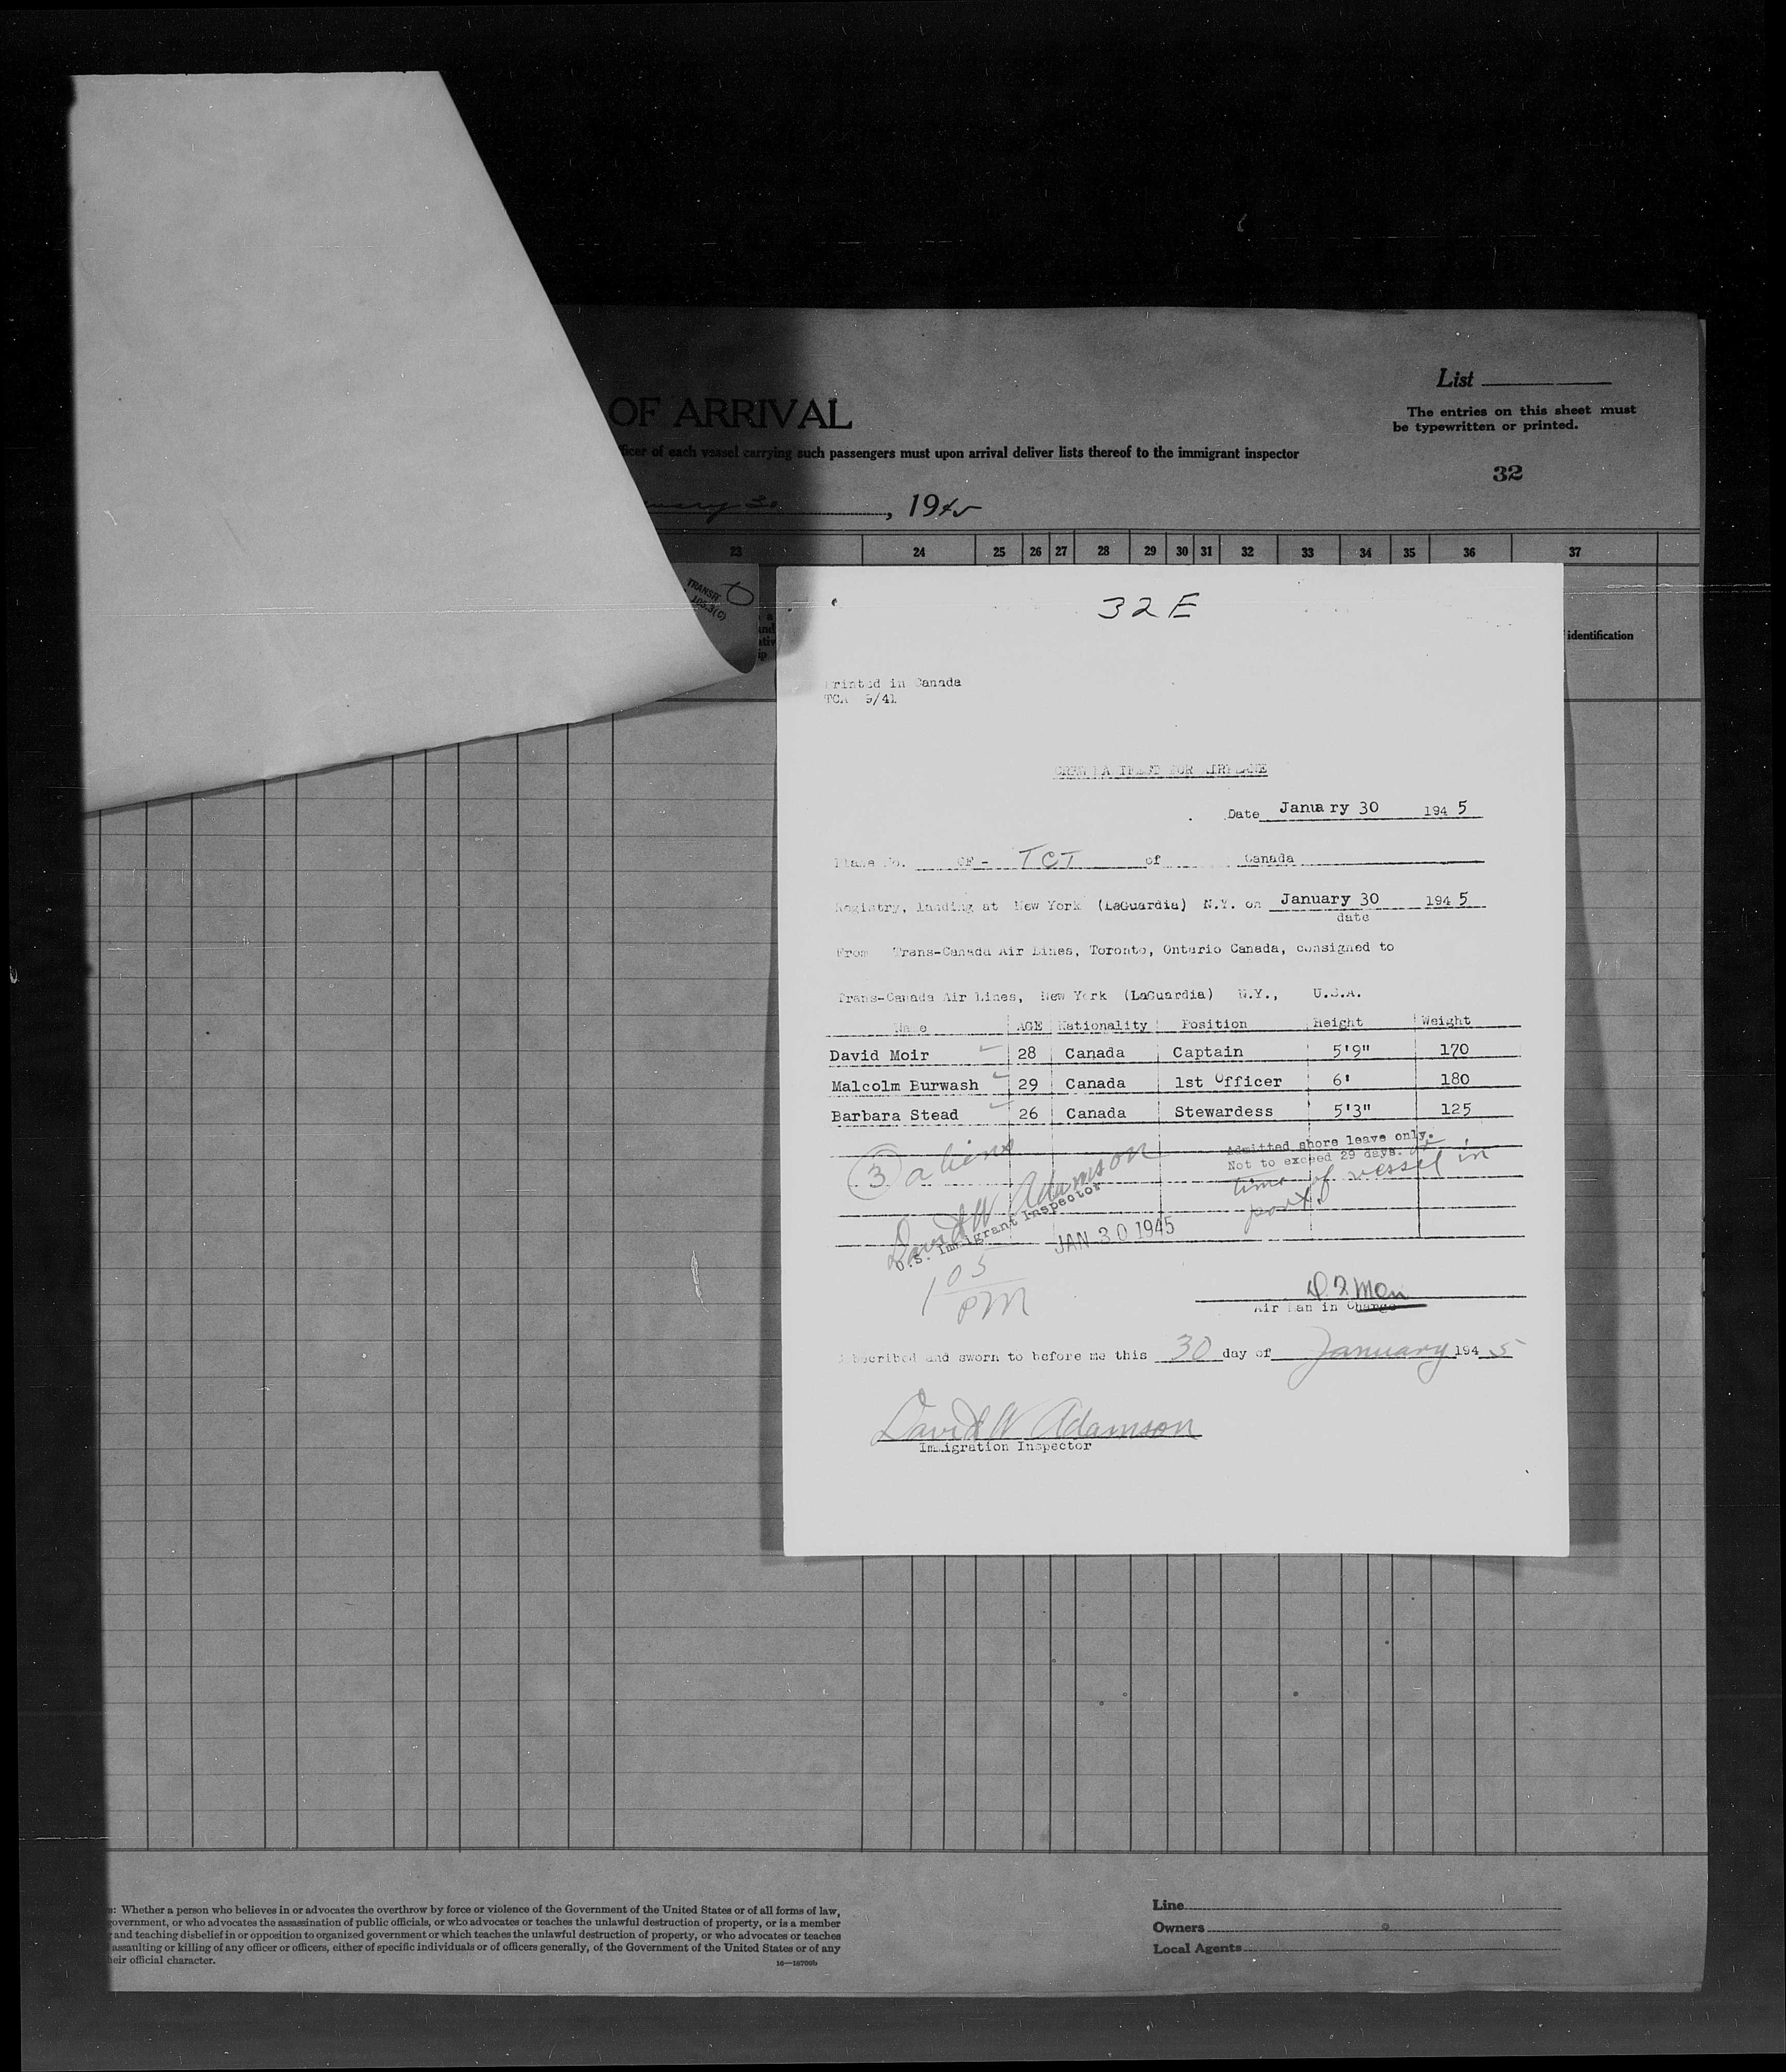 OF ARRIVAL
List
The entries on this sheet must
be typewritten or printed.
ficer of each vessel carrying such passengers must upon arrival deliver lists thereof to the immigrant inspector
32
uary 30, 1945
23 24 25 26 27 28 29 30 31 32 33 34 35 36 37
TRANSIT
103.3(C)
identification
32E
Printed in Canada
TCA 9/41
CREW MANIFEST FOR AIRPLANE
Date January 30 1945
Plane No. CF- TCT of Canada
Registry, landing at New York (LaGuardia) N.Y. on January 30 1945
date
From Trans-Canada Air Lines, Toronto, Ontario Canada, consigned to
Trans-Canada Air Lines, New York (LaGuardia) N.Y., U.S.A.
Name AGE Nationality Position Height Weight
David Moir 28 Canada Captain 5'9" 170
Malcolm Burwash 29 Canada 1st Officer 6' 180
Barbara Stead 26 Canada Stewardess 5'3" 125
3 aliens
Admitted shore leave only.
Not to exceed 29 days.
time of vessel in
port.
David W Adamson
U.S. Immigrant Inspector
JAN 30 1945
1 05
PM
Air Man in Charge
Subscribed and sworn to before me this 30 day of January 1945
David W Adamson
Immigration Inspector
s: Whether a person who believes in or advocates the overthrow by force or violence of the Government of the United States or of all forms of law,
government, or who advocates the assassination of public officials, or who advocates or teaches the unlawful destruction of property, or is a member
and teaching disbelief in or opposition to organized government or which teaches the unlawful destruction of property, or who advocates or teaches
assaulting or killing of any officer or officers, either of specific individuals or of officers generally, of the Government of the United States or of any
heir official character.
16—18709b
Line
Owners
Local Agents